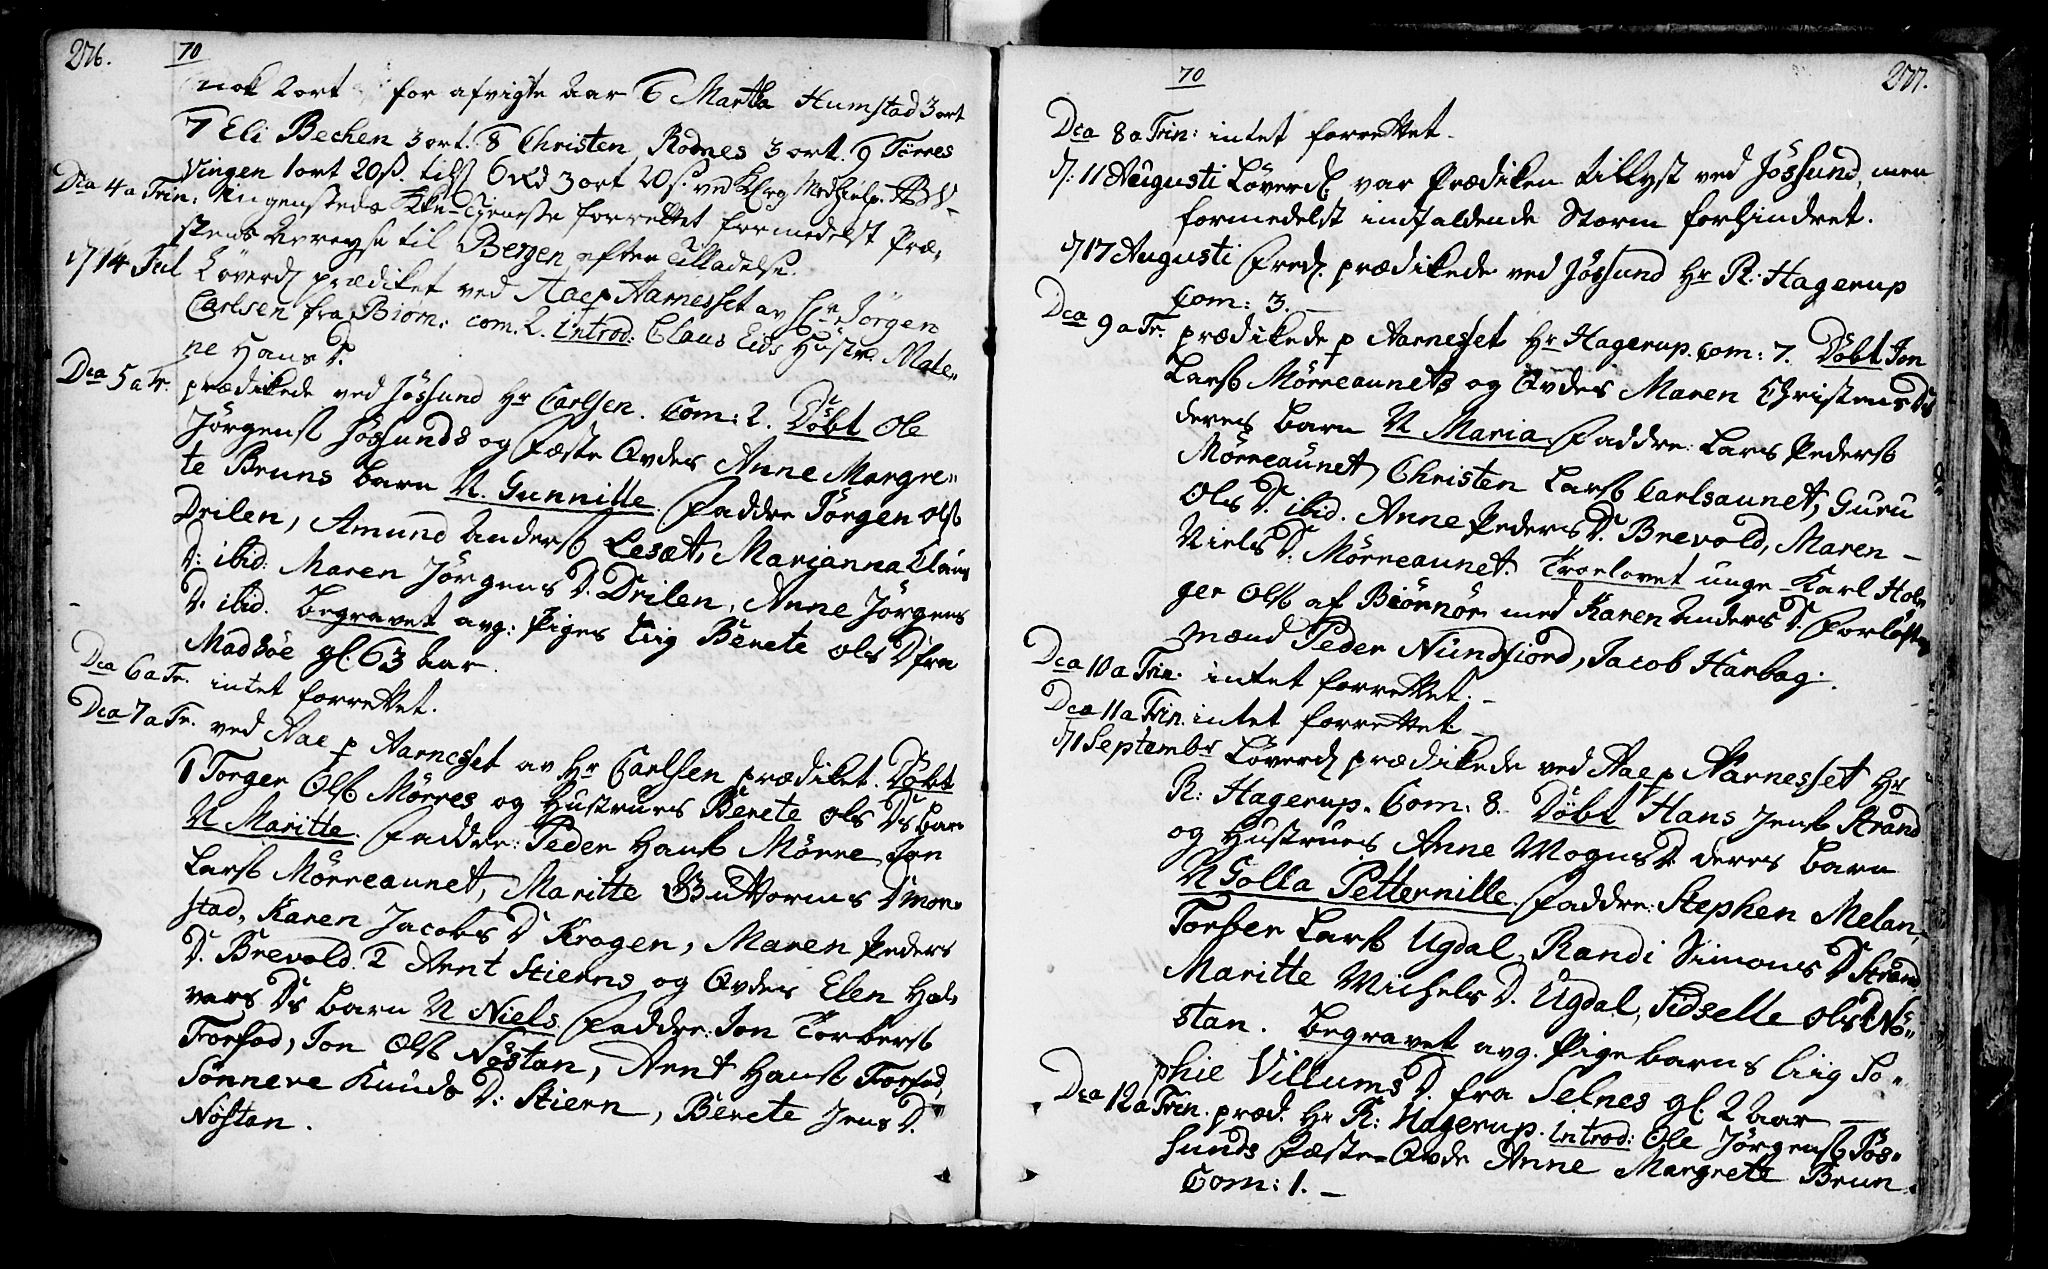 276. 70
nok 2 ort for afvigte Aar 6 Martha Humstad 3 ort
7 Eli Bechen 3 ort. 8 Christen Rodnes 3 ort. 9 Tørres
Vingen 1 ort 20 ß. 6 3 ort 20 ß. ved
Dca 4 a Trin: ingensteds Kke-Tjeneste forrettet formedelst Præ,
stens Bereyse til Bergen efter Tilladelse.
17 14 Jul Løverd prædiket ved Aae p Aarnesset av Hr Jörgen
Carlsen fra Biørn: com. 2. Introd: Claus Eids Hustr. Male„
ne Hans D.
Dca 5 a Tr. prædikede ved Jössund Hr Carlsen. Com: 2. Döbt Ole
Jörgens Jössunds og Fæste Qvdes Anne Margre„
te Bruns barn N. Gunnille. Faddre Jörgen Ols
Drilen, Amund Anders Lesæt, Marjanna Claus
D: ibid: Maren Jörgens D. Drilen, Anne Jörgens
D. ibid. Begravet avg: Piges Liig Berete Ols D fra
Madsöe gl. 63 Aar.
Dca 6 a Tr. intet forrettet.
Dca 7 a Tr. ved Aae p Aarnesset av Hr Carlsen prædiket. Döbt
1 Torger Ols Mörres og Hustrues Berete Ols Ds bar
N Maritte. Faddre: Peder Hans Mörre, Jon
Lars Mörreaunet, Maritte Guttorms D Mor„
stad, Karen Jacobs D Krogen, Maren Peders
D. Brevold. 2 Arnt Stierns og Qvdes Elen Hal„
vars Ds barn N Niels. Faddre: Jon Torbers
Forfod, Jon Ols Nöstan, Arnt Hans Forfod,
Sönneve Knuds D: Stiern, Berete Jens D.
Nöstan.
70 277.
Dca 8 a Trin: intet forrettet.
D: 11 Augusti Löverd var Prædiken tillyst ved Jössund, men
formedelst indfaldende Storm forhindret.
D 17 Augusti Fred. prædikede ved Jössund Hr R: Hagerup
Com: 3.
Dca 9 a Tr. prædikede p Aarnesset Hr Hagerup. Com: 7. Döbt Jon
Lars Mörreaunets og Qvdes Maren Christens Ds
deres barn N Maria. Faddre: Lars Peders
Mörreaunet, Christen Lars Carlsaunet, Guru
Ols D. ibid. Anne Peders D. Brevold, Maren
Niels D. Mörreaunet. Troelovet unge Karl Hol„
ger Ols af Biörnör med Karen Anders D. Forlöfts
mænd Peder Nundfiord, Jacob Harbag.
Dca 10 a Trin: intet forrettet.
Dca 11 a Trin. intet forrettet
D 1 Septembr Löverd prædikede ved Aae p Aarnesset Hr
R: Hagerup. Com: 8. Döbt Hans Jens Strand
og Hustrues Anne Mogns D. deres barn
N Golla Petternille. Faddre: Stephen Melan,
Torber Lars Ugdal, Randi Simons D Strand
Maritte Michels D. Ugdal, Sidselle Ols D Nö„
stan. Begravet avg. Pigebarns Liig So„
phie Villums D. fra Selnes gl. 2 Aar
Dca 12 a Trin. præd. Hr R: Hagerup. Introd: Ole Jörgens Jös„
sunds Fæste-Qvde Anne Margrete Brun.
Com: 1.